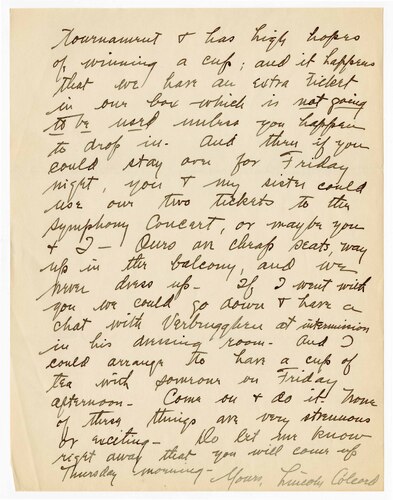 Tournament & has high hopes
of winning a cup; and it happens
that we have an extra ticket
in our box which is not going
to be used unless you happen
to drop in. And then if you
could stay over for Friday
night, you & my sister could
use our two tickets to the
Symphony Concert, or maybe you
& I — Ours are cheap seats, way
up in the balcony, and we
never dress up — If I went with
you we could go down & have a
chat with Verbrugghen at intermission
in his dressing room. And I
could arrange to have a cup of
tea with someone on Friday
afternoon. — Come on & do it. None
of these things are very strenuous
or exciting — Do let me know
right away that you will come up
Thursday morning — Yours, Lincoln Colcord